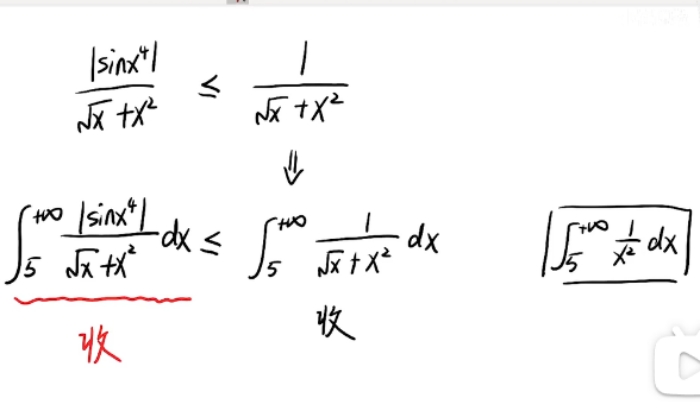 |sinx⁴| / (√x + x²) ≤ 1 / (√x + x²)
⇓
∫₅^{+∞} |sinx⁴| / (√x + x²) dx ≤ ∫₅^{+∞} 1 / (√x + x²) dx  |∫₅^{+∞} 1/x² dx|
收 收